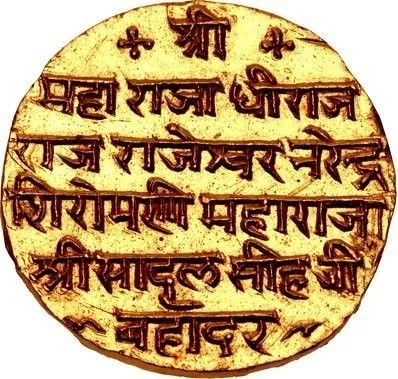 श्री
महा राजा धीराज
राज राजेश्वर नरेन्द्र
शिरोमणी महाराजा
श्री सादुल सींह जी
बहादर